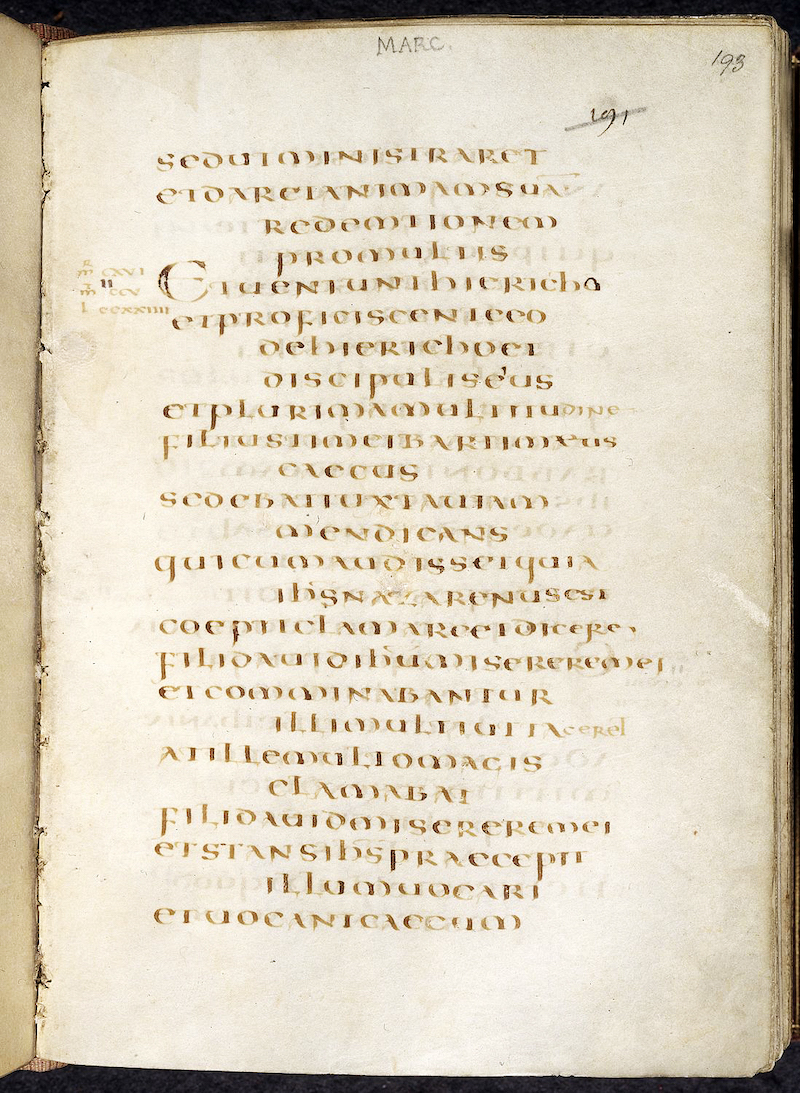 MARC.
193
191
sedutministraret
etdareianimamsuā
redemtionem
promultis
Etueniunthiericho
R
m̄ CXVI
m̄ CCV
L CCXXIIII
etproficiscenteeo
dehierichoet
discipuliseius
etplurimamultitudine
filiustimeibartimaeus
caecus
sedebatiuxtauiam
mendicans
quicumaudissetquia
ihs̄nazarenusest
coepitclamareetdicere
filidauidihūmiserere mei
etcomminabantur
illimultiuttaceret
atillemultomagis
clamabat
filidauidmiserere mei
etstansihs̄praecepit
illumuocari
etuocantcaecum